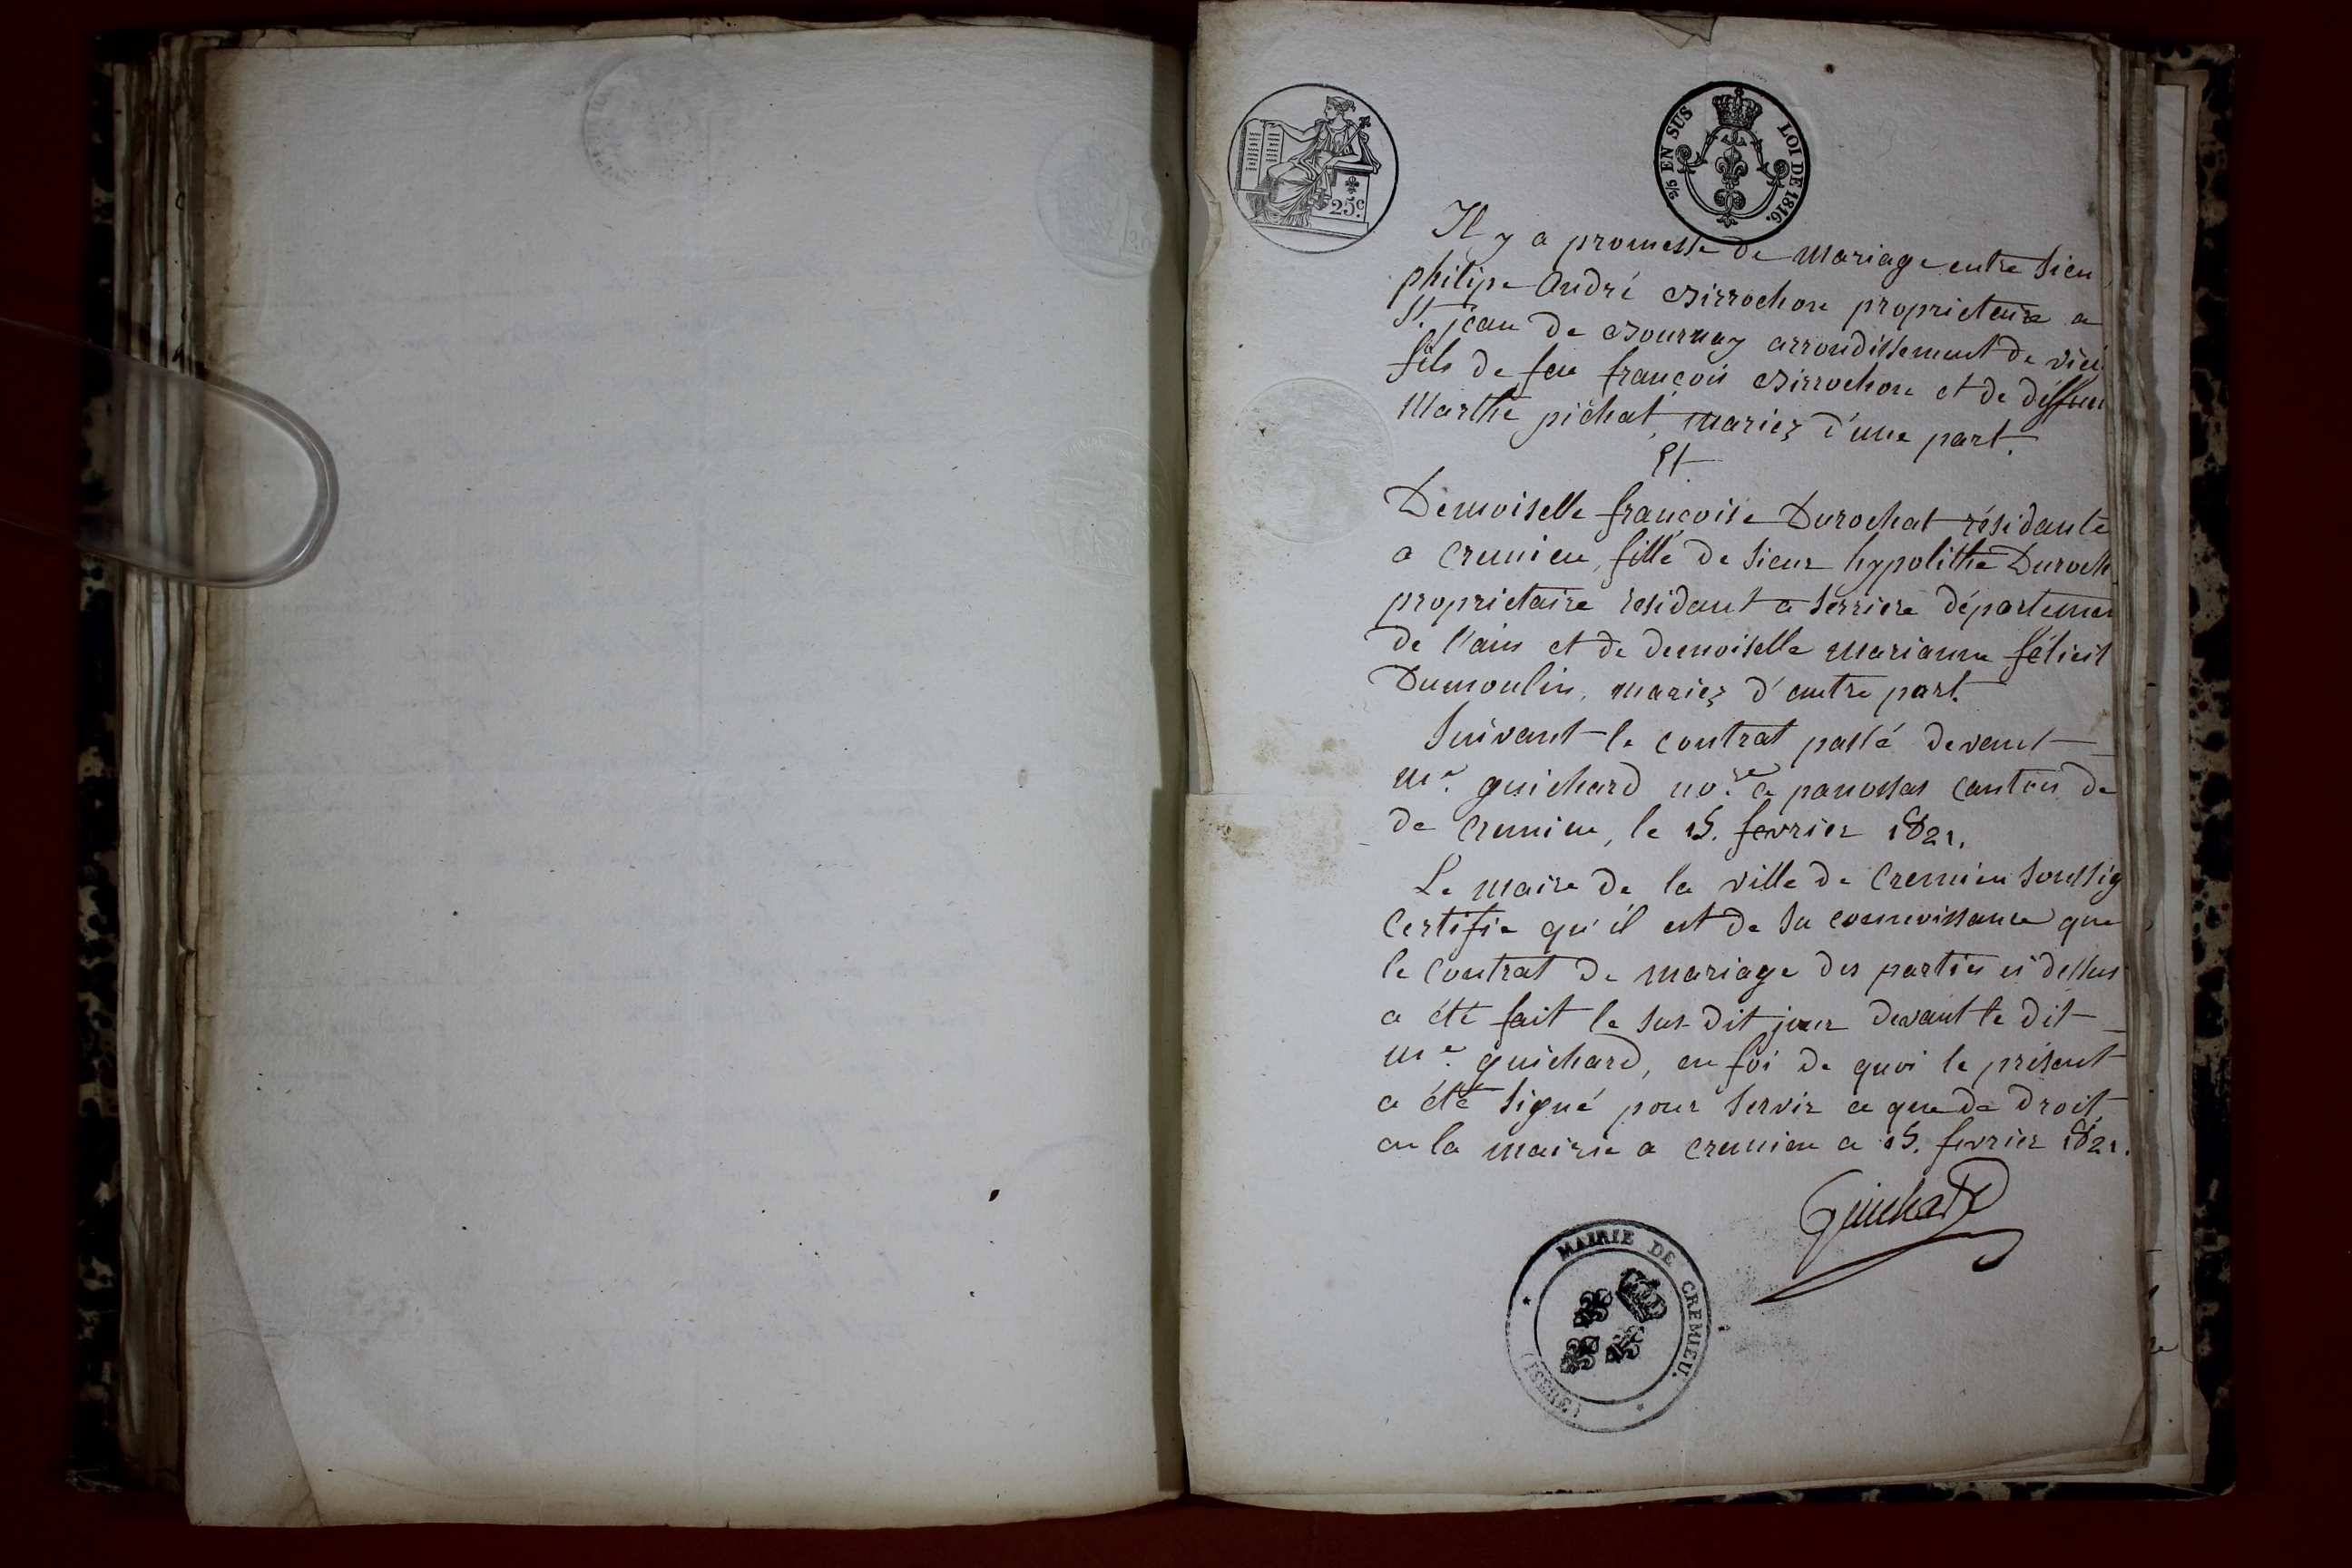 25c.
2/5 EN SUS LOI DE 1816.
Il y a promesse de mariage entre Sieu
philipe andré Birrochon proprietaire a
St. jean de Bournay arrondissement de vien
fils de feu françois Birrochon et de deffun
Marthe pichat, mariez d'une part.
Et
Demoiselle françoise Durochat résidante
a Cremieu, fille de Sieur hypolithe Duroch
propriétaire résidant a Serriere départemen
de l'ain et de demoiselle marianne félicit
Dumoulin, mariez d'autre part.
Suivant le contrat passé devant
Me. guichard nore. a panossas canton de
de Cremieu, le 15. fevrier 1821.
Le maire de la ville de Cremieu soussig
Certifie qu'il est de sa connoissance que
le contrat de mariage des parties ci dessus
a été fait le sus dit jour devant le dit
Me. guichard, en foi de quoi le présent
a été signé pour servir a que de droit
en la mairie a cremieu ce 15. fevrier 1821.
Guichard
MAIRIE DE CREMIEU.
(ISERE)